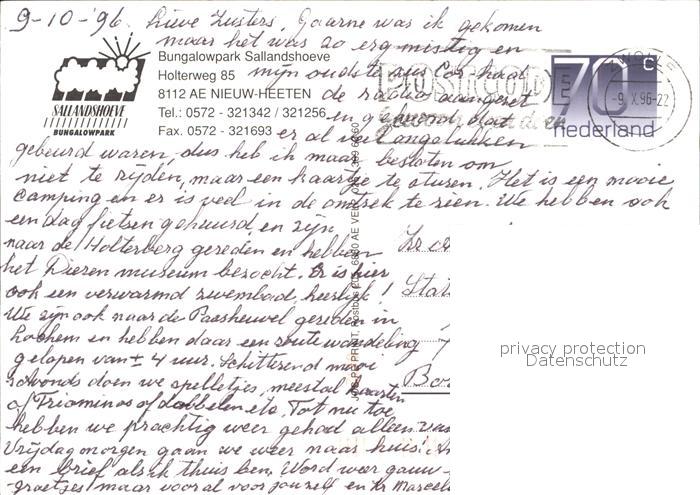 9-10-'96. Lieve Zusters, Gaarne was ik gekomen
maar het was zo erg mistig en
Bungalowpark Sallandshoeve
Holterweg 85
mijn oudste zus Cor had
8112 AE NIEUW-HEETEN
de radio aangezet
Tel.: 0572 - 321342 / 321256
en gehoord dat
Fax. 0572 - 321693
er al veel ongelukken
SALLANDSHOEVE
BUNGALOWPARK
POSTCODE
70 c
nederland
-9.X.96-22
gebeurd waren, dus heb ik maar besloten om
niet te rijden, maar een kaartje te sturen. Het is een mooie
camping en er is veel in de omtrek te zien. We hebben ook
een dag fietsen gehuurd, en zijn
naar de Holterberg gereden en hebben
het Dieren museum bezocht. Er is hier
ook een verwarmd zwembad, heerlijk!
We zijn ook naar de Paasheuvel gereden in
Lochem en hebben daar een route wandeling
gelopen van ± 4 uur. Schitterend mooi
's avonds doen we spelletjes, meestal kaarten
of Triominos of dobbelen etc. Tot nu toe
hebben we prachtig weer gehad alleen
Vrijdag morgen gaan we weer naar huis.
een brief als ik thuis ben. Word weer gauw
groetjes maar vooral voor jouzelf en Zr Marcel
Stat
privacy protection
Datenschutz